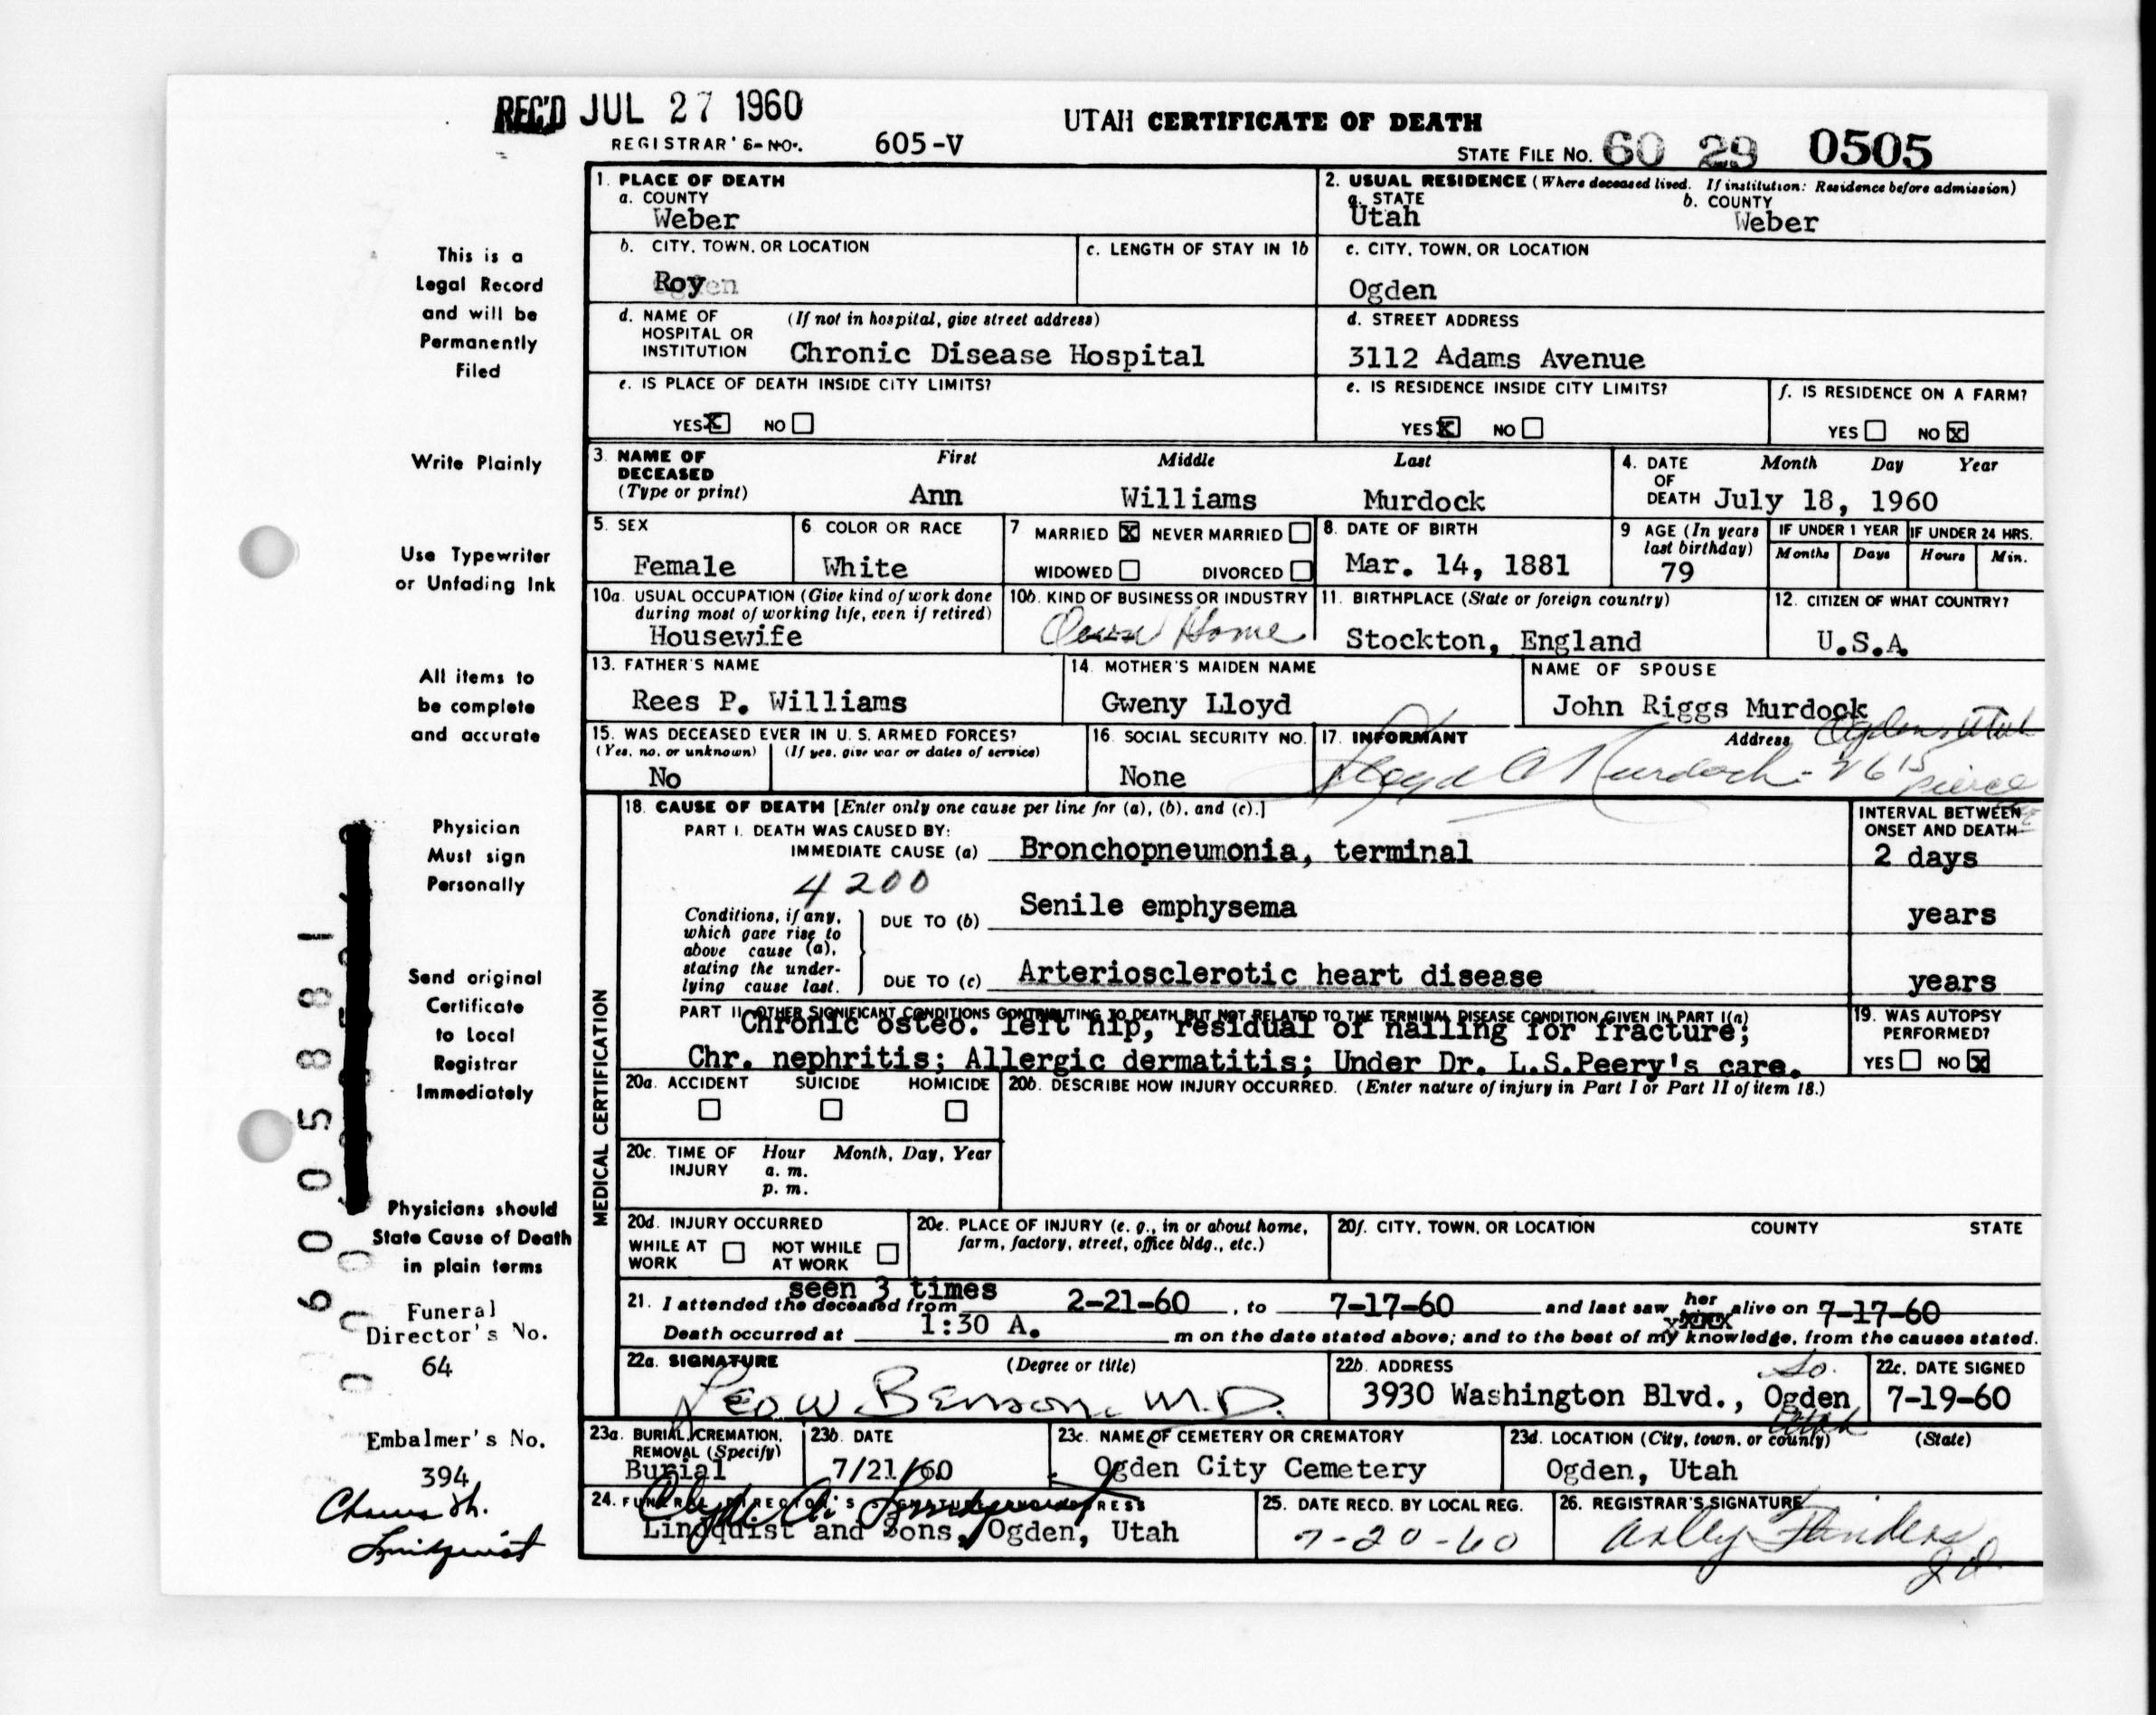 REC'D JUL 27 1960
UTAH CERTIFICATE OF DEATH
REGISTRAR'S NO. 605-V
STATE FILE NO. 60 29 0505
1. PLACE OF DEATH
a. COUNTY
Weber
2. USUAL RESIDENCE (Where deceased lived. If institution: Residence before admission)
a. STATE
Utah
b. COUNTY
Weber
b. CITY, TOWN, OR LOCATION
Roy
c. LENGTH OF STAY IN 1b
c. CITY, TOWN, OR LOCATION
Ogden
d. NAME OF HOSPITAL OR INSTITUTION (If not in hospital, give street address)
Chronic Disease Hospital
d. STREET ADDRESS
3112 Adams Avenue
e. IS PLACE OF DEATH INSIDE CITY LIMITS?
YES X NO
e. IS RESIDENCE INSIDE CITY LIMITS?
YES X NO
f. IS RESIDENCE ON A FARM?
YES NO X
3. NAME OF DECEASED (Type or print)
First Middle Last
Ann Williams Murdock
4. DATE OF DEATH
Month Day Year
July 18, 1960
5. SEX
Female
6. COLOR OR RACE
White
7. MARRIED X NEVER MARRIED
WIDOWED DIVORCED
8. DATE OF BIRTH
Mar. 14, 1881
9 AGE (In years last birthday)
79
IF UNDER 1 YEAR
Months Days
IF UNDER 24 HRS.
Hours Min.
10a. USUAL OCCUPATION (Give kind of work done during most of working life, even if retired)
Housewife
10b. KIND OF BUSINESS OR INDUSTRY
Own Home
11. BIRTHPLACE (State or foreign country)
Stockton, England
12. CITIZEN OF WHAT COUNTRY?
U.S.A.
13. FATHER'S NAME
Rees P. Williams
14. MOTHER'S MAIDEN NAME
Gweny Lloyd
NAME OF SPOUSE
John Riggs Murdock
15. WAS DECEASED EVER IN U. S. ARMED FORCES?
(Yes, no, or unknown) (If yes, give war or dates of service)
No
16. SOCIAL SECURITY NO.
None
17. INFORMANT Address
Ogden, Utah
Murdock - 2615 Pierce
MEDICAL CERTIFICATION
18. CAUSE OF DEATH [Enter only one cause per line for (a), (b), and (c).]
INTERVAL BETWEEN ONSET AND DEATH
PART I. DEATH WAS CAUSED BY:
IMMEDIATE CAUSE (a) Bronchopneumonia, terminal
2 days
4200
Conditions, if any, which gave rise to above cause (a), stating the underlying cause last.
DUE TO (b) Senile emphysema
years
DUE TO (c) Arteriosclerotic heart disease
years
PART II. OTHER SIGNIFICANT CONDITIONS CONTRIBUTING TO DEATH BUT NOT RELATED TO THE TERMINAL DISEASE CONDITION GIVEN IN PART I(a)
Chronic osteo. left hip, residual of nailing for fracture;
Chr. nephritis; Allergic dermatitis; Under Dr. L.S.Peery's care.
19. WAS AUTOPSY PERFORMED?
YES NO X
20a. ACCIDENT SUICIDE HOMICIDE
20b. DESCRIBE HOW INJURY OCCURRED. (Enter nature of injury in Part I or Part II of item 18.)
20c. TIME OF INJURY
Hour Month, Day, Year
a. m.
p. m.
20d. INJURY OCCURRED
WHILE AT WORK NOT WHILE AT WORK
20e. PLACE OF INJURY (e. g., in or about home, farm, factory, street, office bldg., etc.)
20f. CITY, TOWN, OR LOCATION COUNTY STATE
seen 3 times
21. I attended the deceased from 2-21-60, to 7-17-60 and last saw her alive on 7-17-60
Death occurred at 1:30 A. m on the date stated above; and to the best of my knowledge, from the causes stated.
22a. SIGNATURE (Degree or title)
Leo W Benson M.D.
22b. ADDRESS
3930 Washington Blvd., So. Ogden Utah
22c. DATE SIGNED
7-19-60
23a. BURIAL, CREMATION, REMOVAL (Specify)
Burial
23b. DATE
7/21/60
23c. NAME OF CEMETERY OR CREMATORY
Ogden City Cemetery
23d. LOCATION (City, town, or county) (State)
Ogden, Utah
24. FUNERAL DIRECTOR'S SIGNATURE ADDRESS
Lindquist and Sons, Ogden, Utah
25. DATE RECD. BY LOCAL REG.
7-20-60
26. REGISTRAR'S SIGNATURE
This is a
Legal Record
and will be
Permanently
Filed
Write Plainly
Use Typewriter
or Unfading Ink
All items to
be complete
and accurate
Physician
Must sign
Personally
Send original
Certificate
to Local
Registrar
Immediately
Physicians should
State Cause of Death
in plain terms
Funeral
Director's No.
64
Embalmer's No.
394
Lindquist